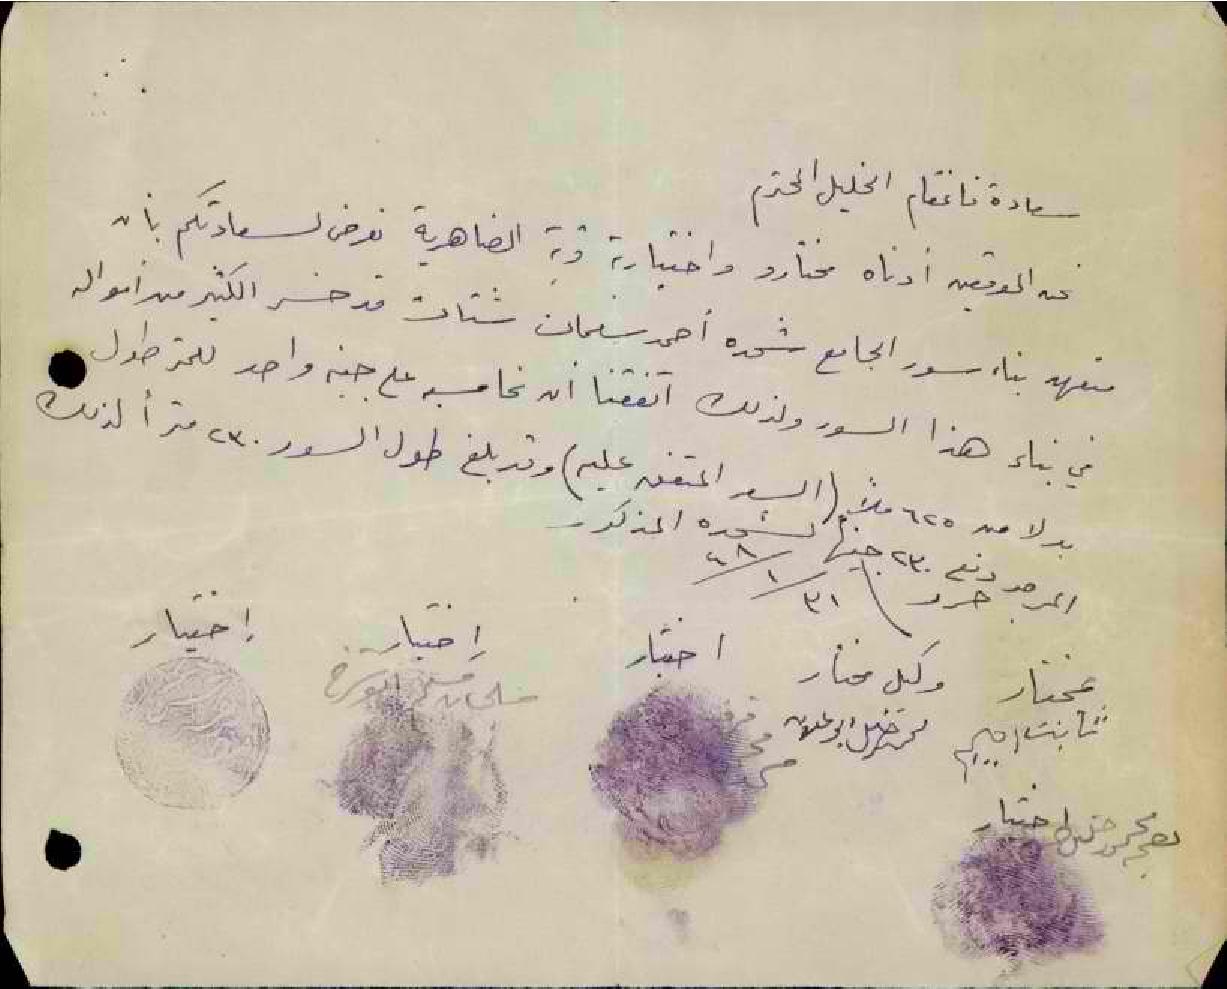 سعادة قائمقام الخليل المحترم
نحن الموقعين أدناه مختارو واختيارية قرية الضاهرية نعرض لسعادتكم بأن
متعهد بناء سور الجامع شحده أحمد سليمان شتات قد خسر الكثير من أمواله
في بناء هذا السور ولذلك اتفقنا ان نحاسبه على جنيه واحد للمتر طول
بدلا من ٦٢٥ ملاً (السعر المتفق عليه) وقد بلغ طول السور ٢٣٠ متراً لذلك
المرجو دفع ٢٣٠ جنيهاً لشحده المذكور
حرر ٣١/١/٤٨
مختار
وكيل مختار
اختيار
اختيار
اختيار
ثابت
محمد خليل
محمد
سلمان
اختيار
محمود خليل